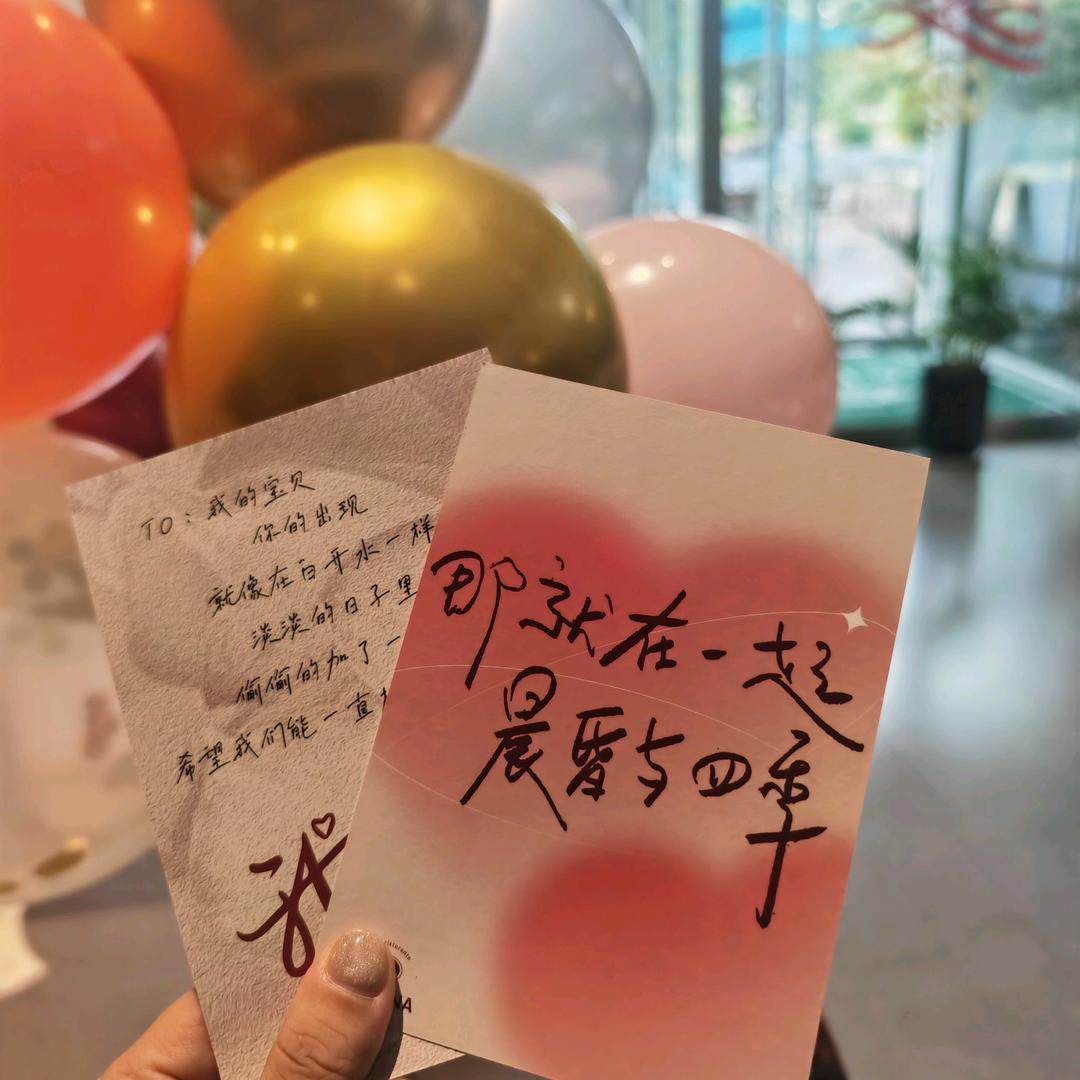 TO：我的宝贝
你的出现
就像在白开水一样
淡淡的日子里
偷偷的加了一
希望我们能一直
那就在一起
晨昏与四季
ristorante